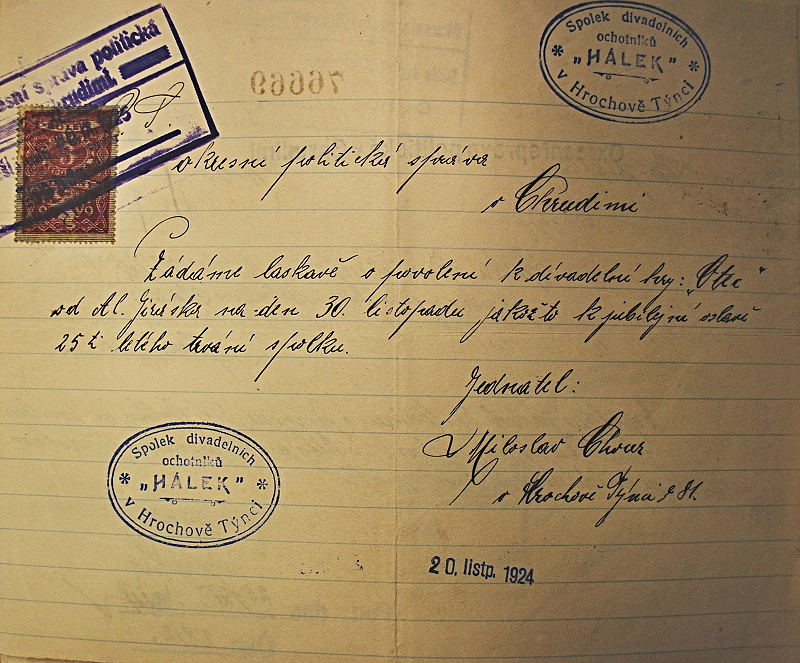 Spolek divadelních
ochotníků
* „HÁLEK" *
v Hrochově Týnci
esní správa politická
Chrudimi
76669
P. T.
okresní politická správa
v Chrudimi
Žádáme laskavě o povolení k divadelní hry: „Otec"
od Al. Jiráska na den 30. listopadu jakožto k jubilejní oslavě
25 ti letého trvání spolku.
Jednatel:
Miloslav
v Hrochově Týnci č 81.
Spolek divadelních
ochotníků
* „HÁLEK" *
v Hrochově Týnci
20. listp. 1924